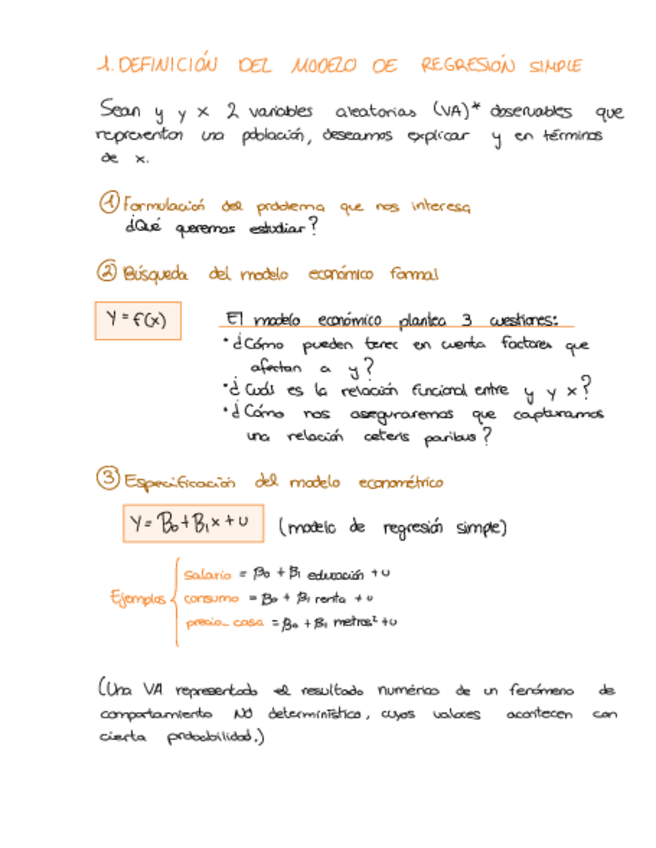 1. DEFINICIÓN DEL MODELO DE REGRESIÓN SIMPLE
Sean y y x 2 variables aleatorias (VA)* observables que
representan una población, deseamos explicar y en términos
de x.
① Formulación del problema que nos interesa
¿Qué queremos estudiar?
② Búsqueda del modelo económico formal
Y = f(x)
El modelo económico plantea 3 cuestiones:
· ¿Cómo pueden tener en cuenta factores que
afectan a y?
· ¿Cuál es la relación funcional entre y y x?
· ¿Cómo nos aseguraremos que capturamos
una relación ceteris paribus?
③ Especificación del modelo econométrico
Y = β₀ + β₁x + u (modelo de regresión simple)
Ejemplos
salario = β₀ + β₁ educación + u
consumo = β₀ + β₁ renta + u
precio_casa = β₀ + β₁ metros² + u
(Una VA representada el resultado numérico de un fenómeno de
comportamiento NO determinístico, cuyos valores acontecen con
cierta probabilidad.)